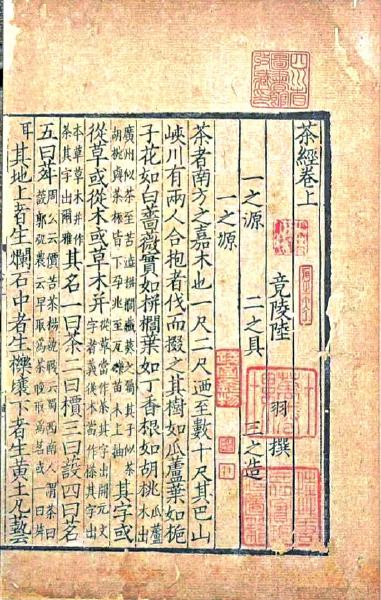 茶經卷上
竟陵陸 羽 撰
一之源 二之具 三之造
一之源
茶者南方之嘉木也一尺二尺迺至數十尺其巴山
峽川有兩人合抱者伐而掇之其樹如瓜蘆葉如梔
子花如白薔薇實如栟櫚葉如丁香根如胡桃
瓜蘆木出
廣州似茶至苦澁栟櫚蒲葵之屬其子似茶
胡桃與茶根皆下孕兆至瓦礫苗木上抽
其字或
從草或從木或草木并
從草當作茶其字出開元文
字音義從木當作㮈其字出
本草草木并作
荼其字出爾雅
其名一曰茶二曰檟三曰蔎四曰茗
五曰荈
周公云檟苦荼揚執戟云蜀西南人謂荼曰
蔎郭弘農云早取為茶晚取為茗或一曰荈
耳其地上者生爛石中者生櫟壤下者生黃土凡藝